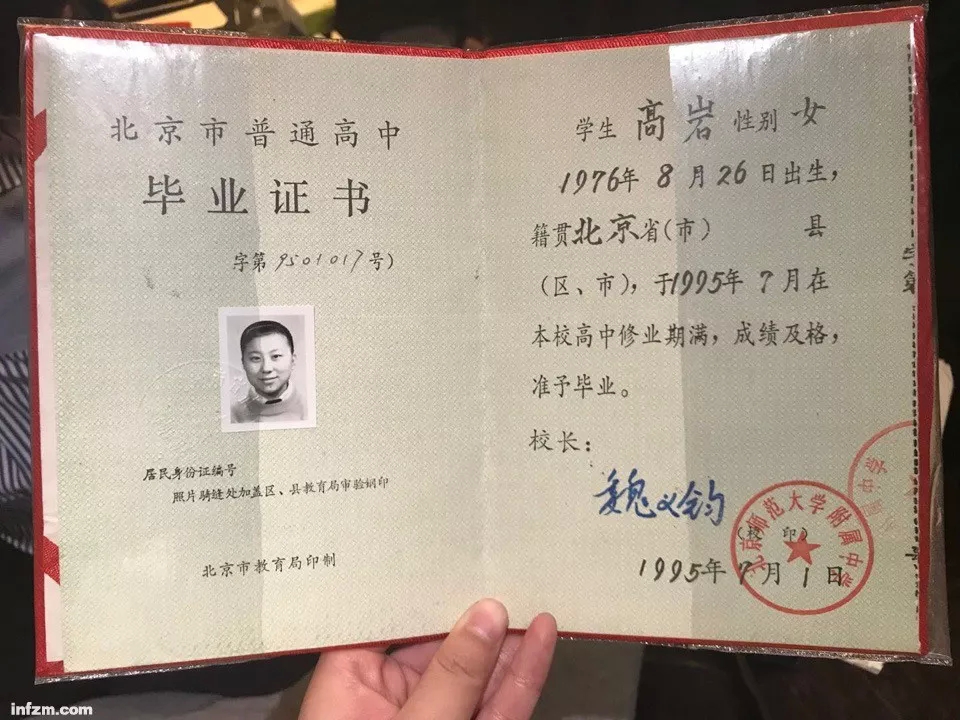 北京市普通高中
毕业证书
字第9501017号)
居民身份证编号
照片骑缝处加盖区、县教育局审验钢印
北京市教育局印制
学生 高岩 性别 女
1976年 8月26日出生，
籍贯北京省(市) 县
(区、市)，于1995年 7月在
本校高中修业期满，成绩及格，
准予毕业。
校长：
魏义钧
(校印)
北京师范大学附属中学
1995年 7月 1日
infzm.com